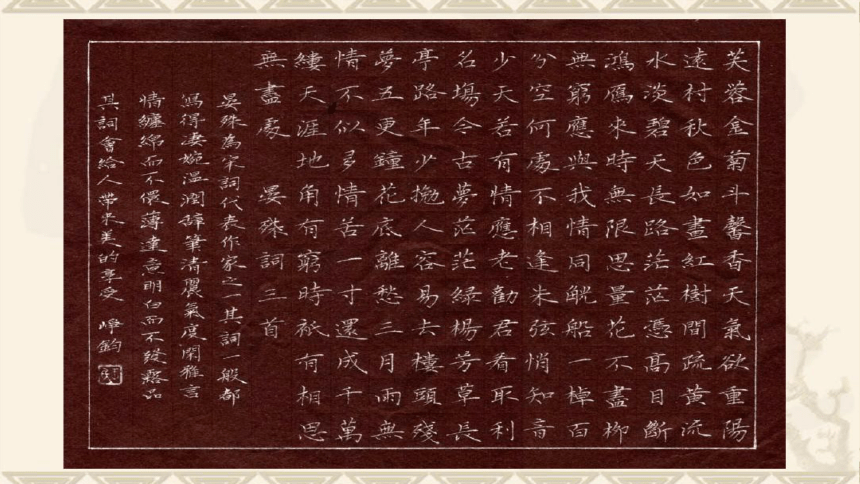 芙蓉金菊斗馨香天氣欲重陽
遠村秋色如畫紅樹間疏黃流
水淡碧天長路茫茫憑高目斷
鴻鴈來時無限思量花不盡柳
無窮應與我情同觥船一棹百
分空何處不相逢朱弦悄知音
少天若有情應老勸君看取利
名場今古夢茫茫綠楊芳草長
亭路年少拋人容易去樓頭殘
夢五更鐘花底離愁三月雨無
情不似多情苦一寸還成千萬
縷天涯地角有窮時祇有相思
無盡處 晏殊詞三首
晏殊為宋詞代表作家之一其詞一般都
寫得淒婉溫潤辭筆清麗氣度閑雅言
情纏綿而不儇薄達意明白而不露品
其詞會給人帶來美的享受 鈞